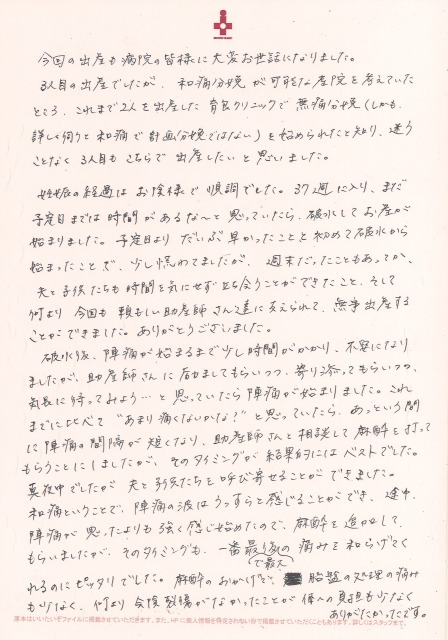 今回の出産も病院の皆様に大変お世話になりました。
3人目の出産でしたが、和痛分娩が可能な産院を考えていた
ところ、これまで2人を出産した育良クリニックで無痛分娩(しかも、
詳しく伺うと和痛で計画分娩ではない)を始められたと知り、迷う
ことなく3人目もこちらで出産したいと思いました。
妊娠の経過はお陰様で順調でした。37週に入り、まだ
予定日までは時間があるな〜と思っていたら、破水してお産が
始まりました。予定日よりだいぶ早かったことと初めて破水から
始まったことで、少し慌てましたが、週末だったこともあってか、
夫と子供たちも時間を気にせず立ち会うことができたこと、そして
何より今回も頼もしい助産師さん達に支えられて、無事出産する
ことができました。ありがとうございました。
破水後、陣痛が始まるまで少し時間がかかり、不安になり
ましたが、助産師さんに励ましてもらいつつ、寄り添ってもらいつつ、
気長に待ってみよう…と思っていたら陣痛が始まりました。これ
までに比べて"あまり痛くないかな?"と思っていたら、あっという間
に陣痛の間隔が短くなり、助産師さんと相談して麻酔を打って
もらうことにしましたが、そのタイミングが結果的にはベストでした。
真夜中でしたが夫と子供たちを呼び寄せることができました。
和痛ということで、陣痛の波はうっすらと感じることができ、途中、
陣痛が思ったよりも強く感じ始めたので、麻酔を追加して、
もらいましたが、そのタイミングも、一番最後の痛みを和らげてく
れるのにピッタリでした。麻酔のおかげで、胎盤の処理の痛み
も少なく、何より会陰裂傷がなかったことが体への負担も少なく
ありがたかったです。
原本はいいたいぞファイルに掲載させていただきます。また、HPに個人情報を特定されない形で掲載させていただくこともあります。詳しくはスタッフまで。